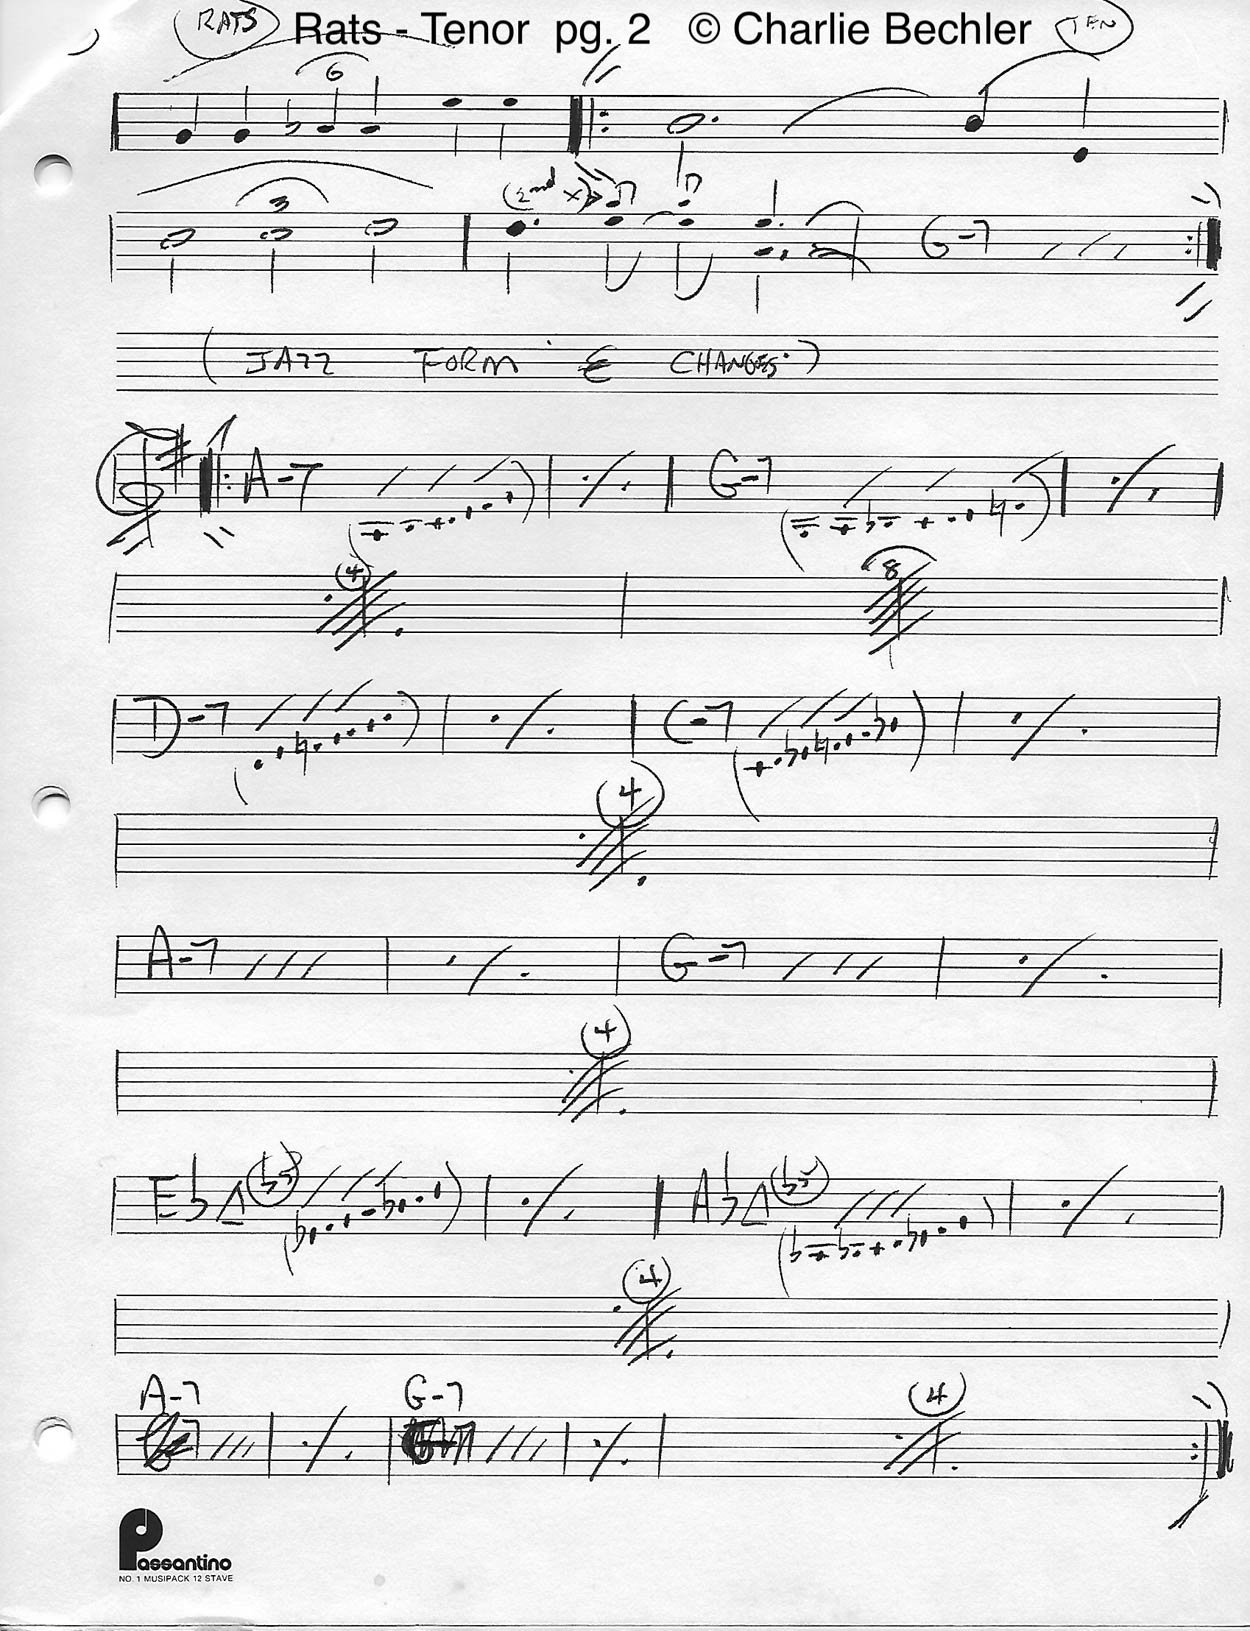 RATS Rats - Tenor pg. 2 © Charlie Bechler TEN
6
3 (2nd x) G-7
(JAZZ FORM & CHANGES)
A-7 G-7
4 8
D-7 C-7
4
A-7 G-7
4
E♭△ ♭5 A♭△ ♭5
4
A-7 G-7 4
Passantino
NO. 1 MUSIPACK 12 STAVE